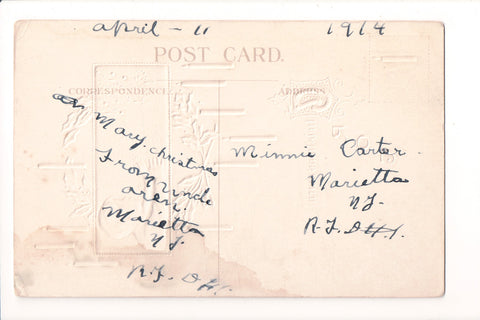 April - 11 1914
POST CARD.
CORRESPONDENCE ADDRESS
Mary christmas
From Uncle
aren.
Marietta
N.J.
R.F. D #1.
Minnie Carter
Marietta
N.J.
R.F. D #1.